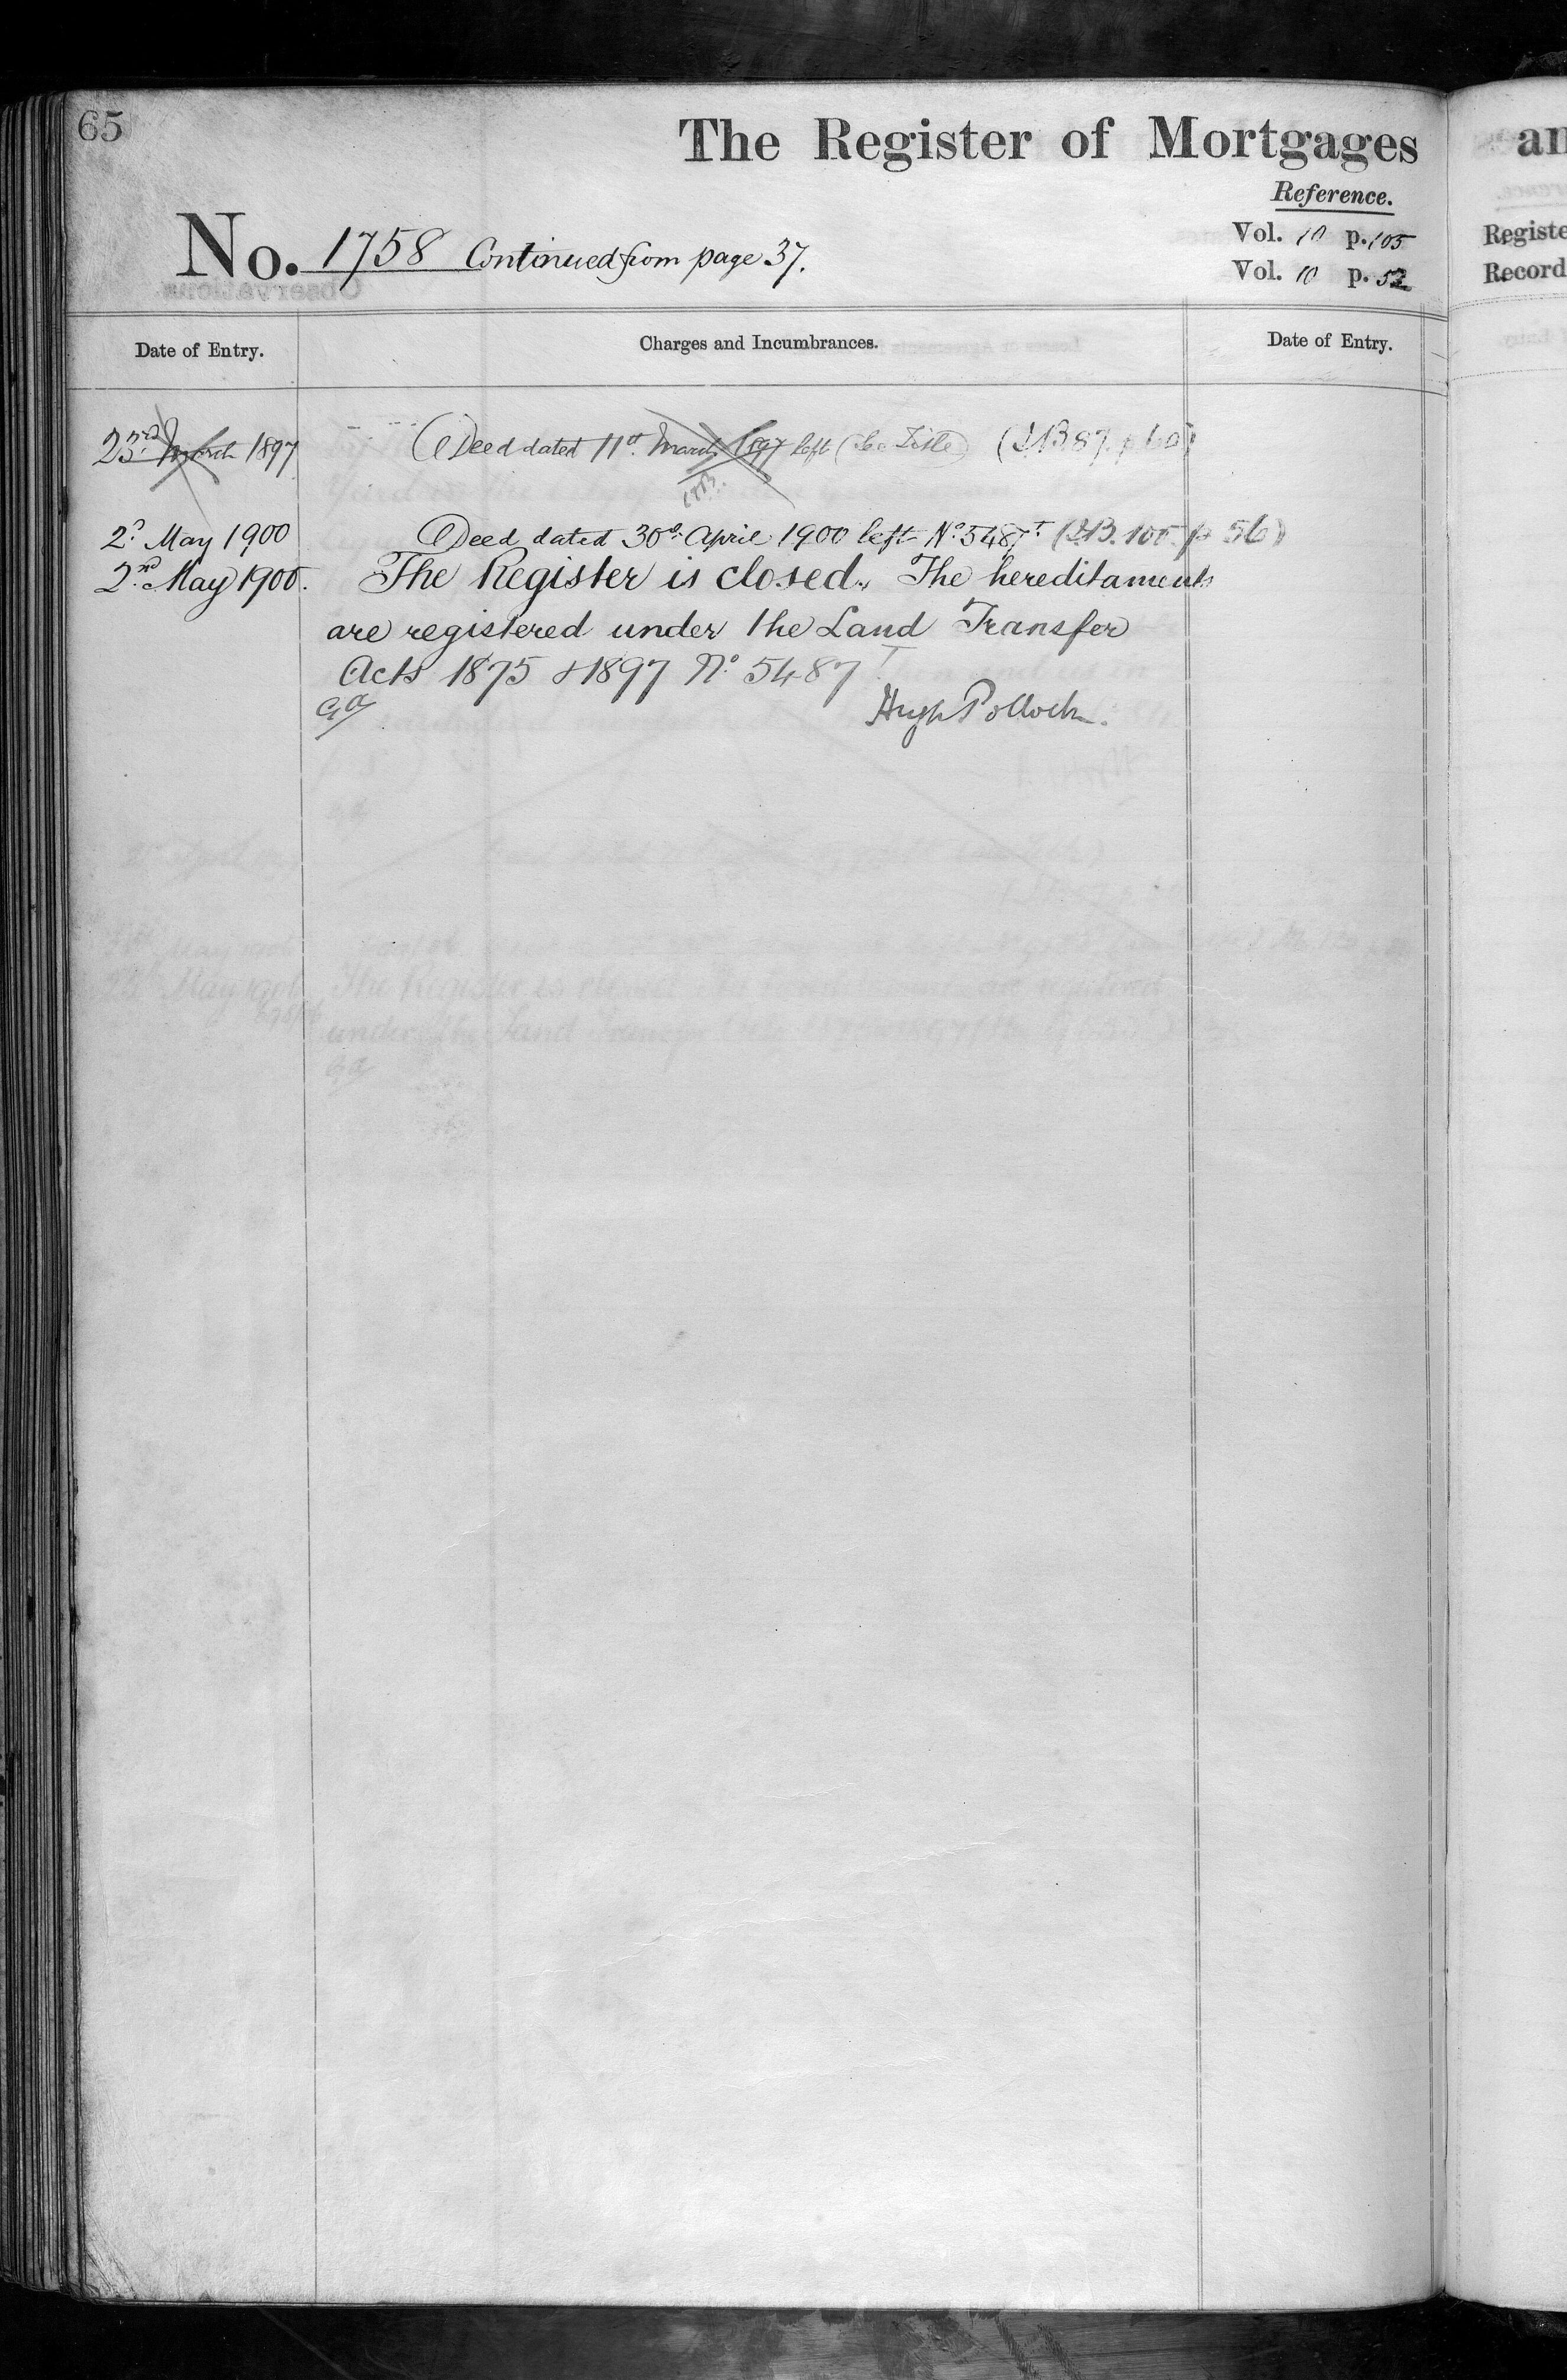 65
The Register of Mortgages
Reference.
No. 1758 Continued from page 37.
Vol. 10 p. 105
Vol. 10 p. 52
an
Registe
Record
Date of Entry.
Charges and Incumbrances.
Date of Entry.
23rd March 1897
Deed dated 11th March 1897 left (See Title) (IB 87. p 60)
2d May 1900
Deed dated 30th April 1900 left No. 5487T (IB. 105. p 56)
2nd May 1900.
The Register is closed. The hereditaments
are registered under the Land Transfer
Acts 1875 & 1897 No 5487T
Hugh Pollock.